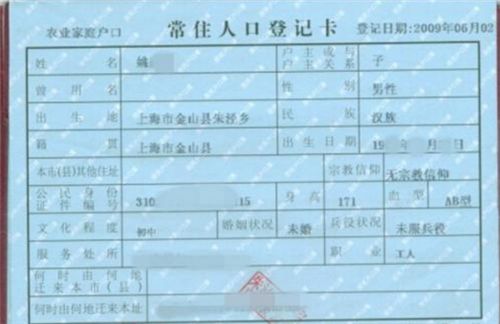 农业家庭户口 常住人口登记卡 登记日期:2009年06月02
姓 名 姚 户主或与户主关系 子
曾用名 性别 男性
出生地 上海市金山县朱泾乡 民族 汉族
籍贯 上海市金山县 出生日期 19 年 月 日
本市(县)其他住址 宗教信仰 无宗教信仰
公民身份证件编号 310 15 身高 171 血型 AB型
文化程度 初中 婚姻状况 未婚 兵役状况 未服兵役
服务处所 职业 工人
何时由何地迁来本市(县)
何时由何地迁来本址